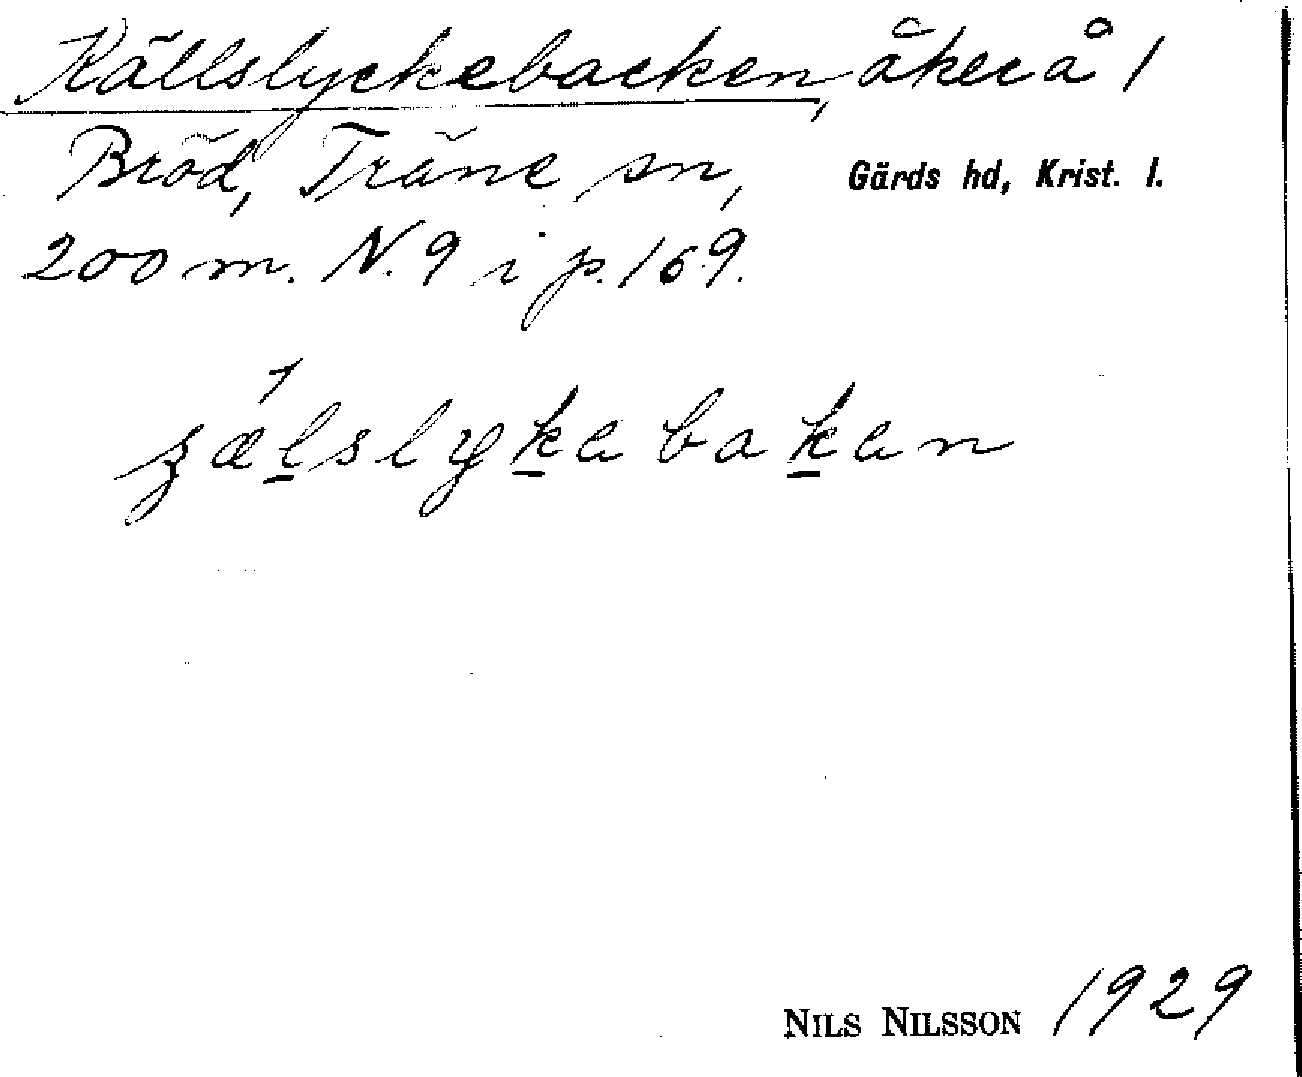 Källslyckebacken, åker å 1
Bröd, Träne sn, Gärds hd, Krist. l.
200 m. N. 9 i p. 169.
kälslykebaken
NILS NILSSON 1929